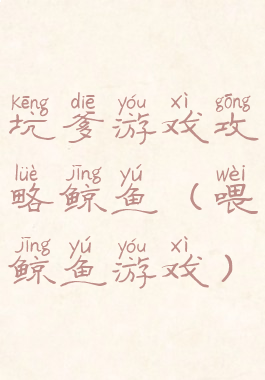 kēng diē yóu xì gōng
坑爹游戏攻
lüè jīng yú wèi
略鲸鱼（喂
jīng yú yóu xì
鲸鱼游戏）